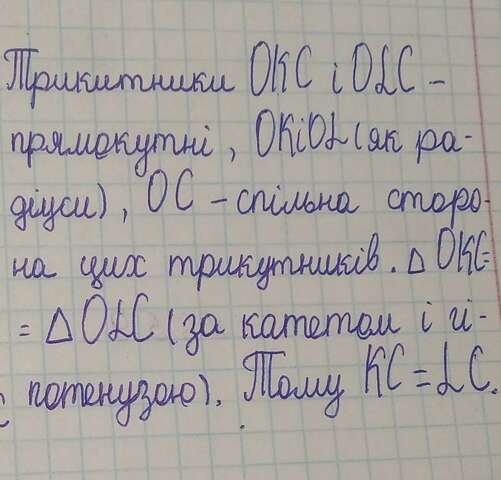 Трикитники OKC і OLC –
прямокутні, OKіOL (як ра-
діуси), OC – спільна сторо-
на цих трикутників. △ OKC=
= △ OLC (за катетом і гі-
потенузою). Тому KC = LC.